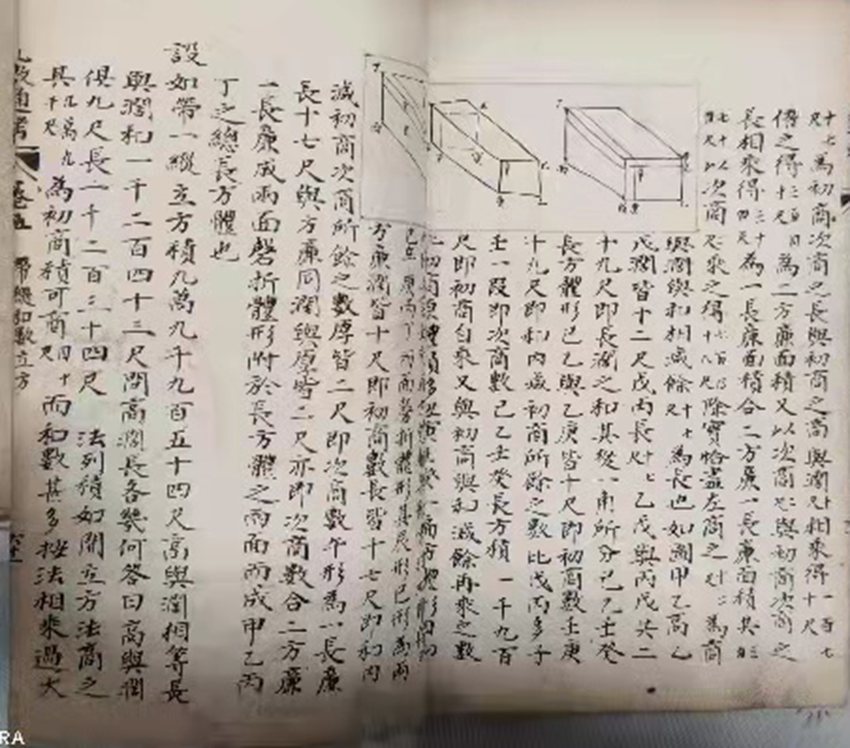 為初商次商之長與初商之高與濶相乘得一百七十尺
倍之得三百四十尺為二方廉面積又以次商二尺與初商次商之
長相乘得三十四尺為一長廉面積合二方廉一長廉面積共三百
七十四尺以次商二尺乘之得七百四十八尺除實恰盡左商之十二尺為高
與濶與和相減餘十七尺為長也如圖甲乙高乙
戊濶皆十二尺戊丙長十七尺乙戊與丙戊共二
十九尺即長濶之和其從一角所分己乙壬癸
長方體形己乙與乙庚皆十尺即初商數壬庚
十九尺即和內減初商所餘之數比戊丙多子
壬一段即次商數己乙壬癸長方積一千九百
尺即初商自乘又與初商與和減餘再乘之數
方廉濶皆十尺即初商數長皆十七尺即和內
減初商次商所餘之數厚皆二尺即次商數午形為一長廉
長十七尺與方廉同濶與厚皆二尺亦即次商數合二方廉
一長廉成兩面磬折體形附於長方體之兩面而成甲乙丙
丁之總長方體也
設如帶一縱立方積九萬九千九百五十四尺高與濶相等長
與濶和一千二百四十三尺問高濶長各幾何答曰高與濶
俱九尺長一千二百三十四尺 法列積如開立方法商之
其九萬九千尺為初商積可商四十尺而和數甚多按法相乘過大
卷五 帶縱和數立方